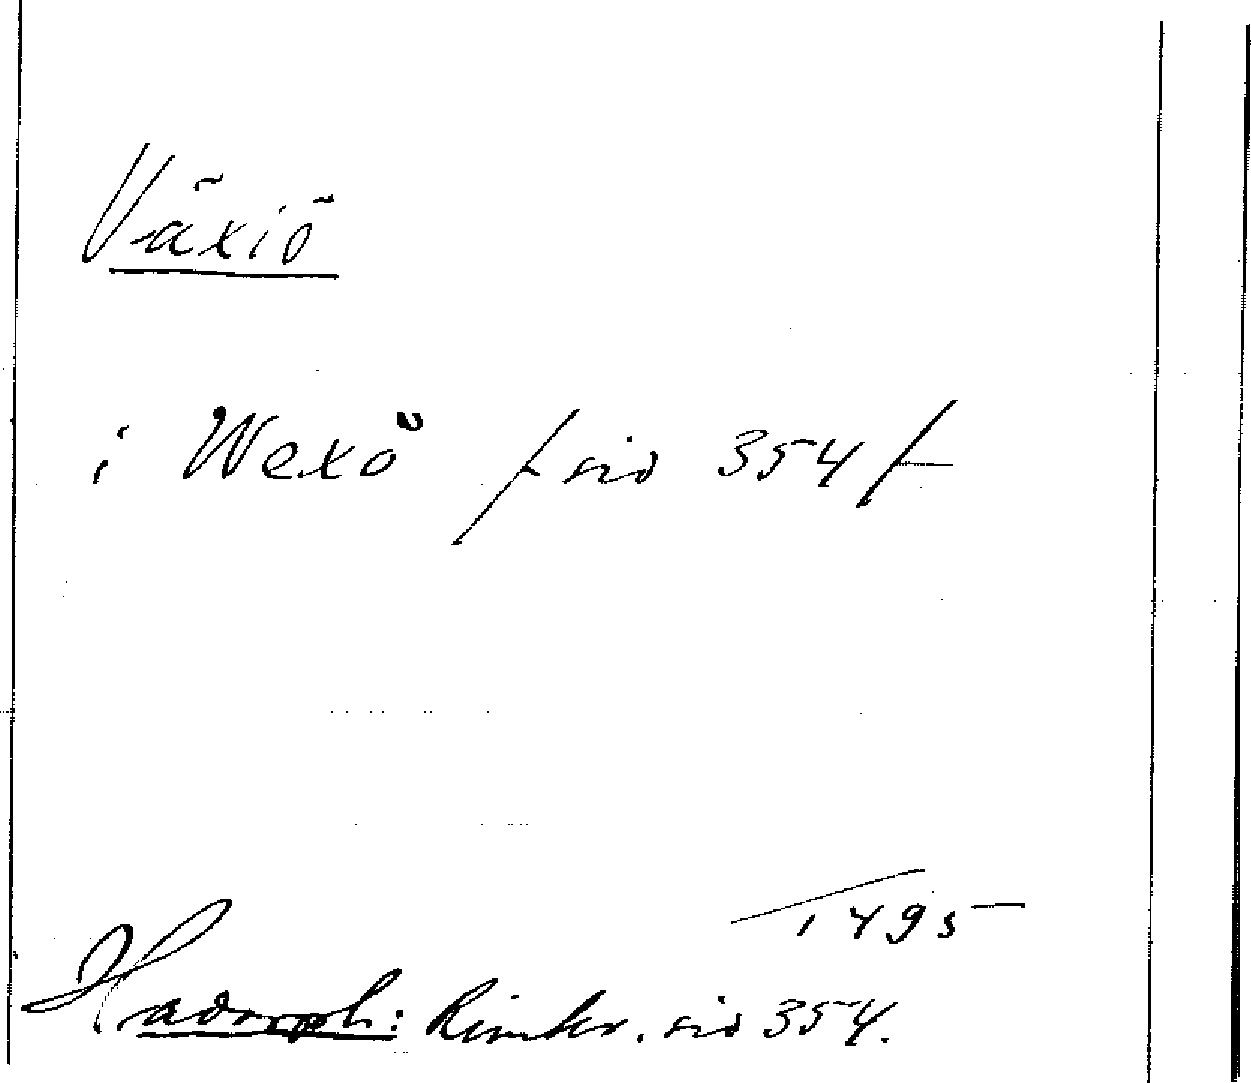 Växiö
i Wexö /sid 354/
1495
Hadorph: Rimkr. sid 354.